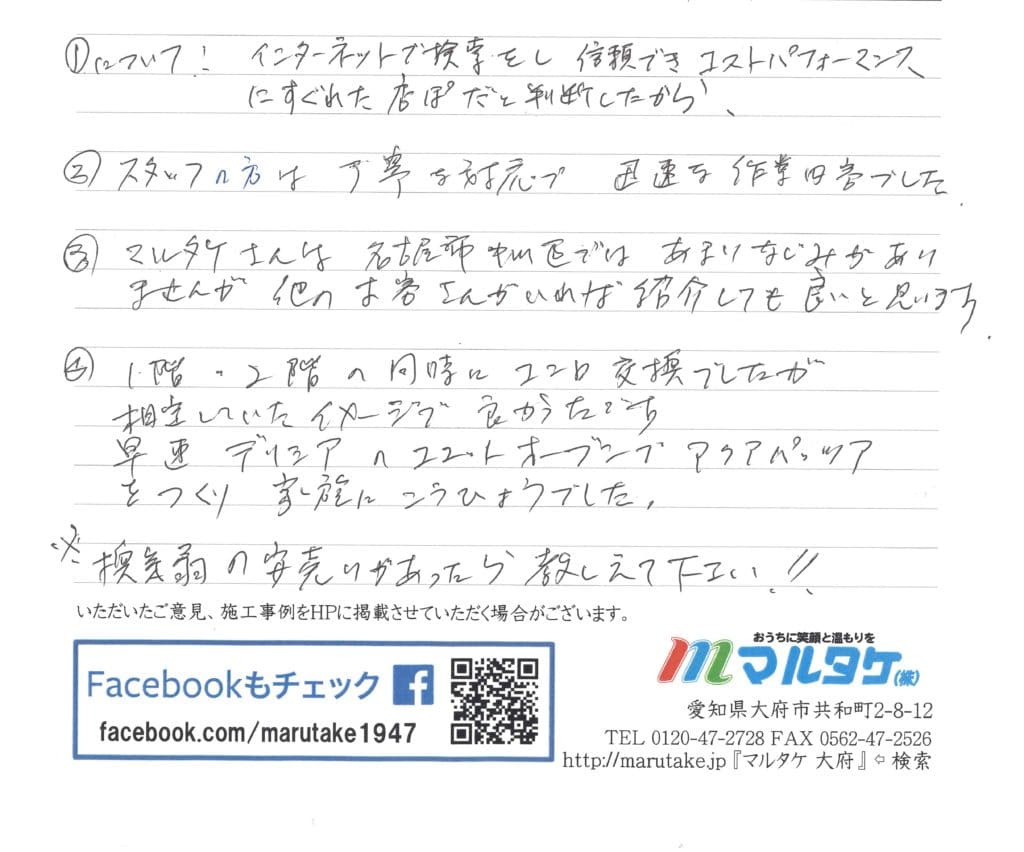 ①について! インターネットで検索をし 信頼でき コストパフォーマンス
にすぐれた 店ぽだと判断したから、
② スタッフの方は 丁寧な対応で 迅速な 作業内容でした.
③ マルタケさんは 名古屋市中川区では あまりなじみがあり
ませんが 他の お客さんがいれば 紹介しても 良いと思います.
④ 1階・2階の同時に コンロ 交換でしたが
想定していた イメージで 良かったです
早速 デリシアの ココットオーブンで アクアパッツア
をつくり 家族に こうひょうでした.
※ 換気扇の安売りがあったら 教しえて下さい!!
いただいたご意見、施工事例をHPに掲載させていただく場合がございます。
Facebookもチェック
facebook.com/marutake1947
おうちに笑顔と温もりを
マルタケ(株)
愛知県大府市共和町2-8-12
TEL 0120-47-2728 FAX 0562-47-2526
http://marutake.jp『マルタケ 大府』⇦検索